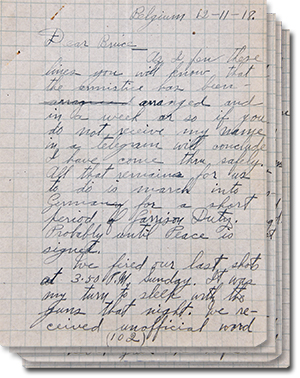 Belgium 12-11-18.
Dear Bruce
As I pen these
lines you will know that
the armistice has been
arranged arranged and
in a week or so if you
do not receive my name
in a telegram will conclude
I have come thru safely.
All that remains for us
to do is march into
Germany for a short
period of Garrison Duty.
Probably until Peace is
signed.
We fired our last shots
at 3:30 P.M. Sunday. It was
my turn to sleek with the
guns that night. We re-
ceived unofficial word
(102)